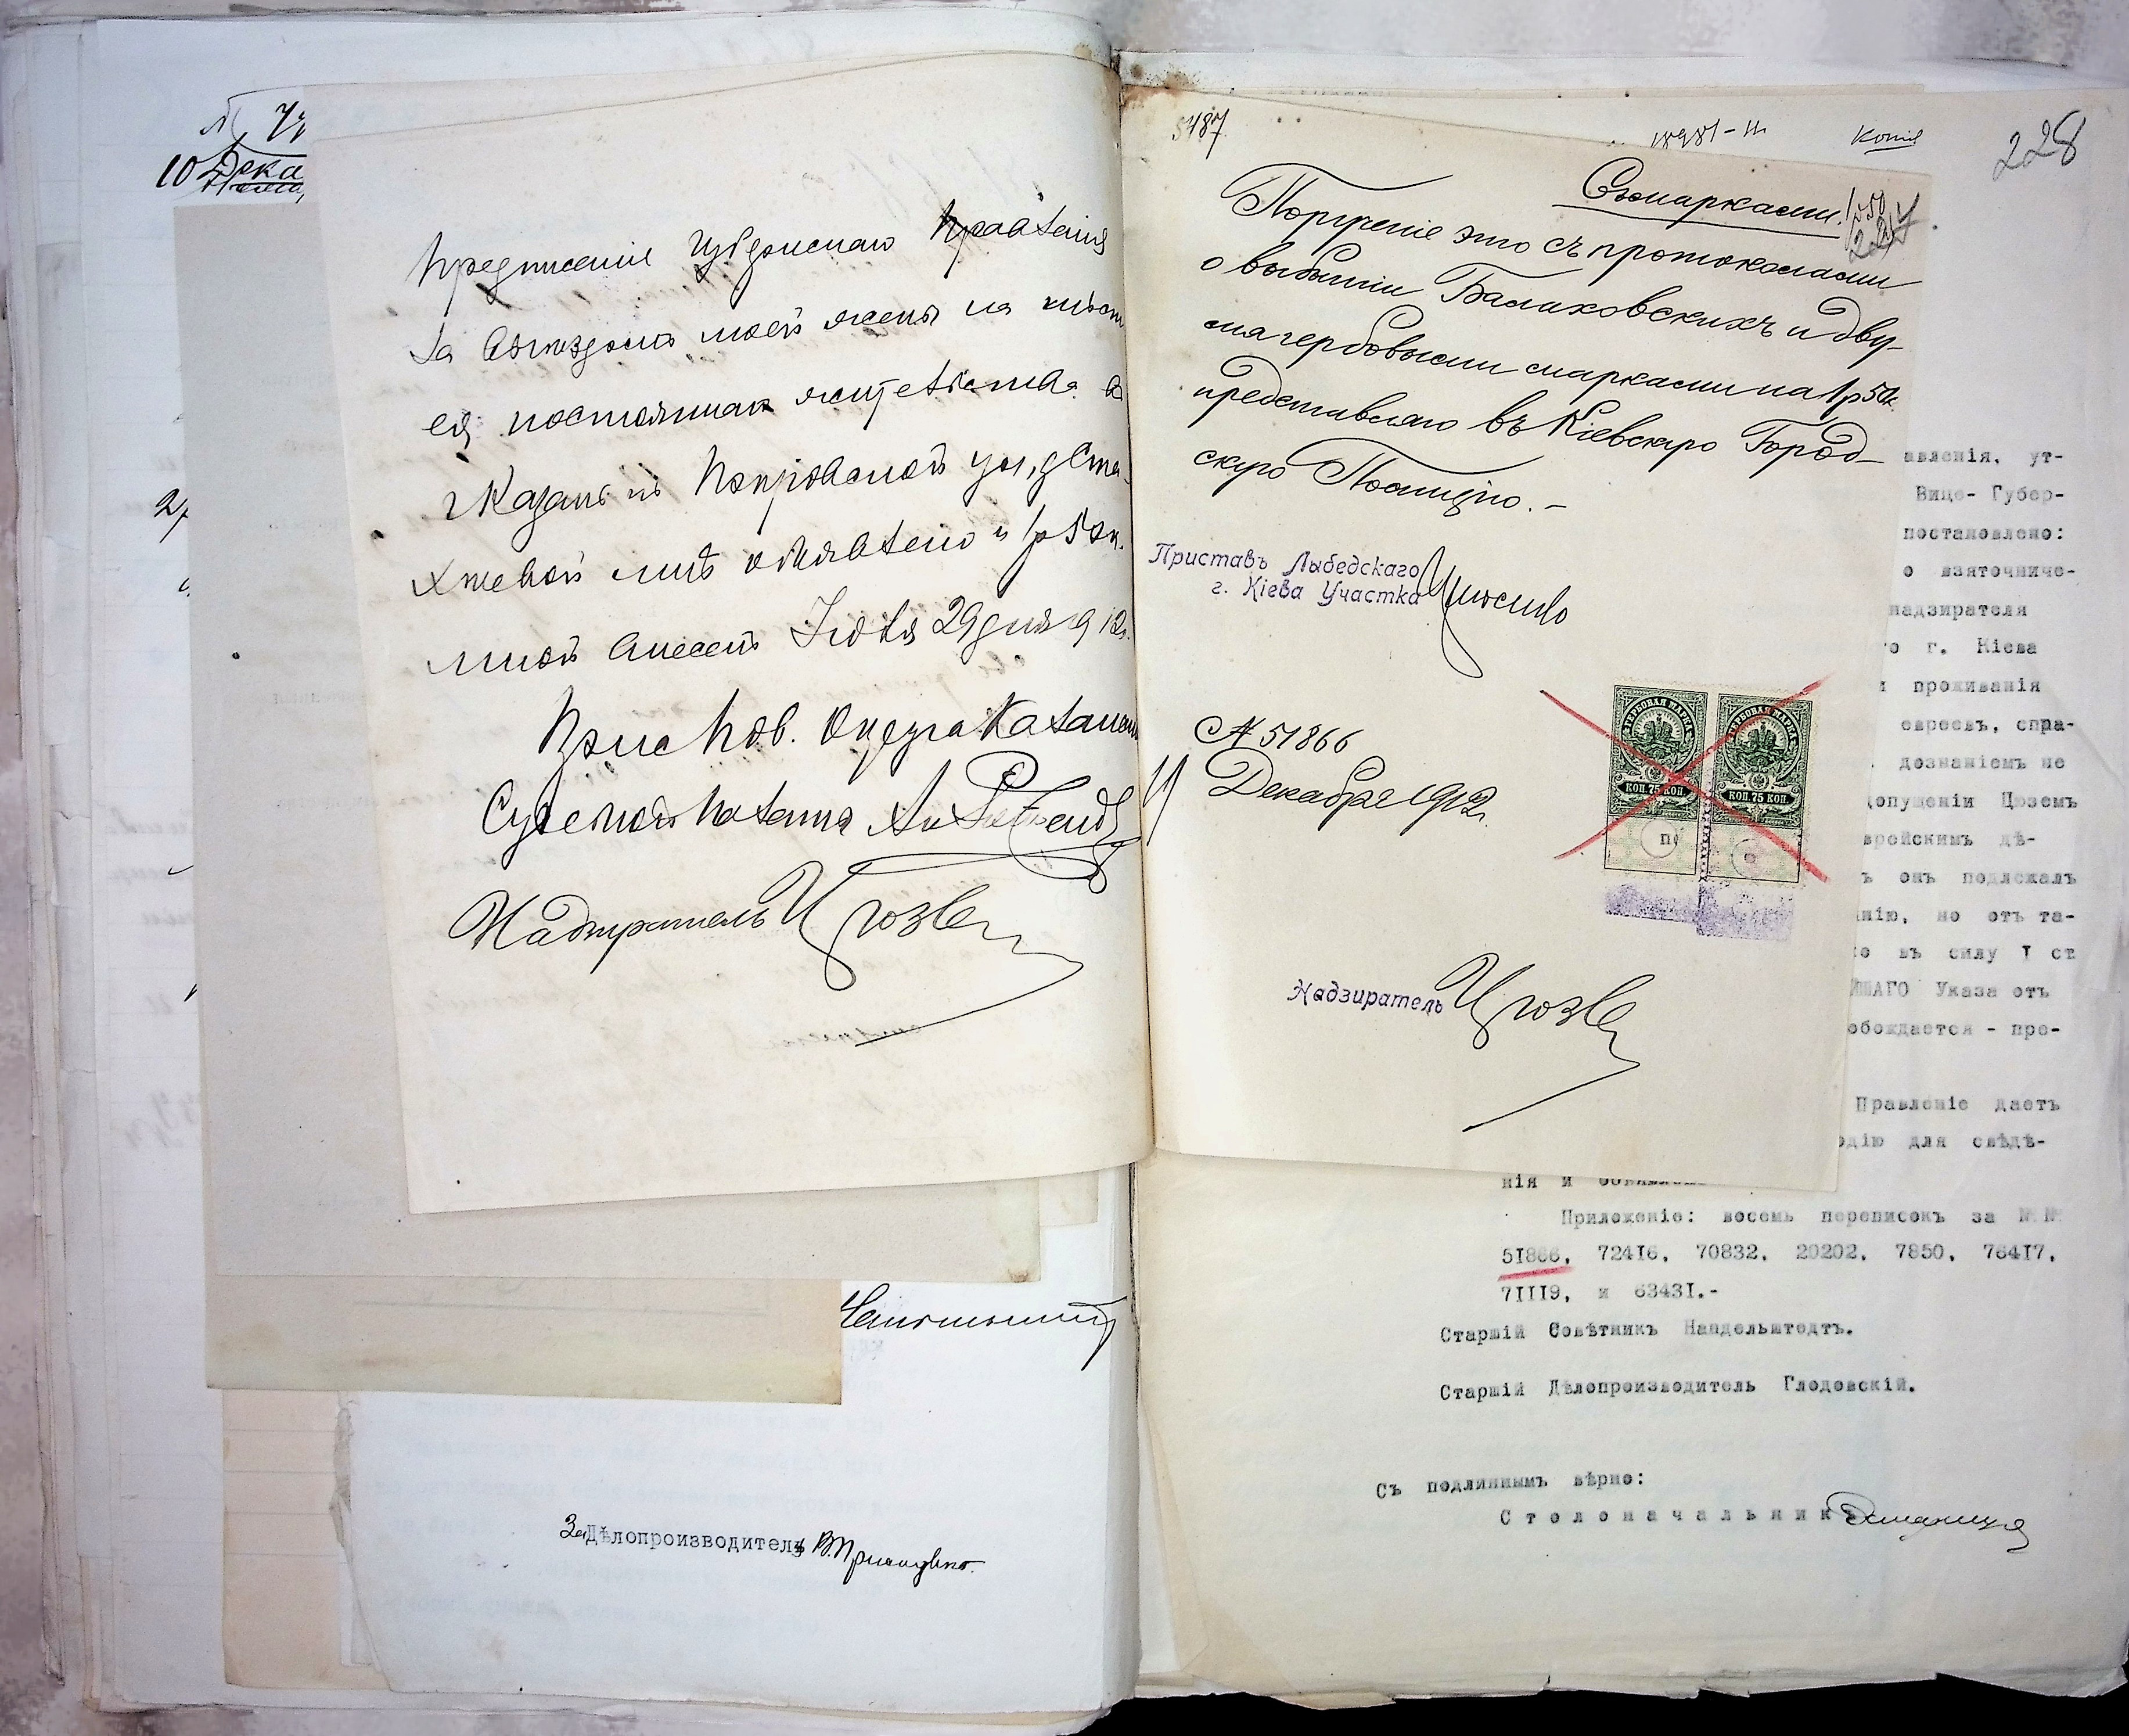 10 Дека
Предписаніе Губернскаго Правленія
за выездомъ моей жены на мѣст
ея постоянная жительства в
г Казань по Покровской ул, д
мнѣ объявлено и 1 р 50 к.
мной внесены Іюля 29 дня 912 г.
Надзиратель Цюзе
Чапинскій
За Дѣлопроизводителя В. Присидько.
5487
18981-III
Копія
228
Съ марками. 1 р 50
227
Порученіе это съ протоколами
о выбытіи Балаховскихъ и дву-
мя гербовыми марками на 1 р 50 к.
представляю въ Кіевскую Город-
скую Полицію. -
Приставъ Лыбедскаго
г. Кіева Участка
№ 51866
11 Декабря 1912 г.
ГЕРБОВАЯ МАРКА
КОП. 75 КОП.
ГЕРБОВАЯ МАРКА
КОП. 75 КОП.
Надзиратель Цюзе
авленія, ут-
Вице- Губер-
постановлено:
о взяточниче-
надзирателя
г. Кіева
и проживанія
евреевъ, спра-
дознаніемъ не
опущеніи Цюземъ
врейскимъ дѣ-
ъ онъ подлежалъ
нію, но отъ та-
ко въ силу I ст
ИШАГО Указа отъ
обождается - про-
Правленіе даетъ
одію для свѣдѣ-
нія и
Приложеніе: восемь переписокъ за №№
51866, 72416, 70832, 20202, 7850, 76417,
71119, и 63431.-
Старшій Совѣтникъ Нандельштедтъ.
Старшій Дѣлопроизводитель Глодовскій.
Съ подлиннымъ вѣрно:
Столоначальникъ